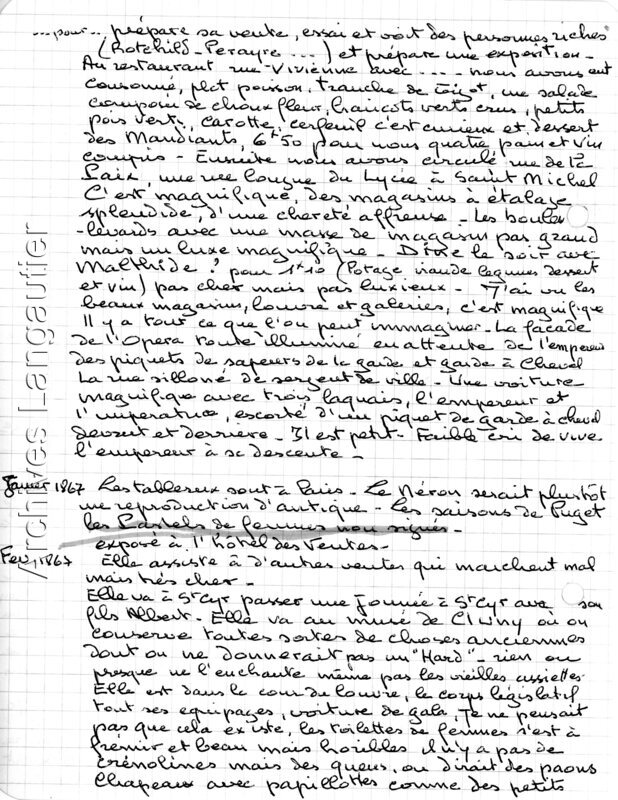 ...pour... prépare sa vente, essai et voit des personnes riches
(Rotchild - Perayre ...) et prépare une exposition -
Au restaurant rue Vivienne avec .... nous avons eut
consomé, plat poisson, tranche de Gigot, une salade
composé de choux fleur, haricots verts crus, petits
pois verts, carotte, cerfeuil c'est curieux et dessert
des Mandiants, 6f50 pour nous quatre pain et vin
compris - Ensuite nous avons circulé rue de la
Paix, une rue longue du Lycée à Saint Michel
C'est magnifique, des magasins à étalage
splendide, d'une chereté affreuse - Les boule
-levards avec une masse de magasin pas grand
mais un luxe magnifique - Diné le soir avec
Malthide? pour 1f10 (Potage, viande legumes dessert
et vin) pas cher mais pas luxieux - J'ai vu les
beaux magasins, louvre et galeries, c'est magnifique
Il y a tout ce que l'on peut immaginer - La facade
de l'Opera toute illuminé en attente de l'empereur
des piquets de sapeurs de la garde et garde à cheval
La rue silloné de sergent de ville - Une voiture
magnifique avec trois laquais, l'empereur et
l'imperatrice, escorté d'un piquet de garde à cheval
devant et derrière - Il est petit - Faible cri de vive
l'empereur à sa descente -
Janvier 1867 Les tableaux sont à Paris - Le Néron serait plustôt
une reproduction d'antique - Les saisons de Puget
les Pastels de femmes non signés -
exposé à l'hôtel des Ventes -
Fev, 1867 Elle assiste à d'autres ventes qui marchent mal
mais très cher -
Elle va à St Cyr passer une journée à St Cyr avec son
fils Albert - Elle va au musé de Cluny où on
conserve toutes sortes de choses anciennes
dont on ne donnerait pas un "Hard" - rien ou
presque ne l'enchante même pas les vieilles assiettes
Elle est dans la cour du louvre, le corps legislatif
tout ses equipages, voiture de gala, Je ne pensait
pas que cela existe, les toilettes de femmes s'est à
frémir et beau mais horibles il n'y a pas de
crénolines mais des queus, on dirait des paons
Chapeaux avec papillottes comme des petits
Archives Langautier